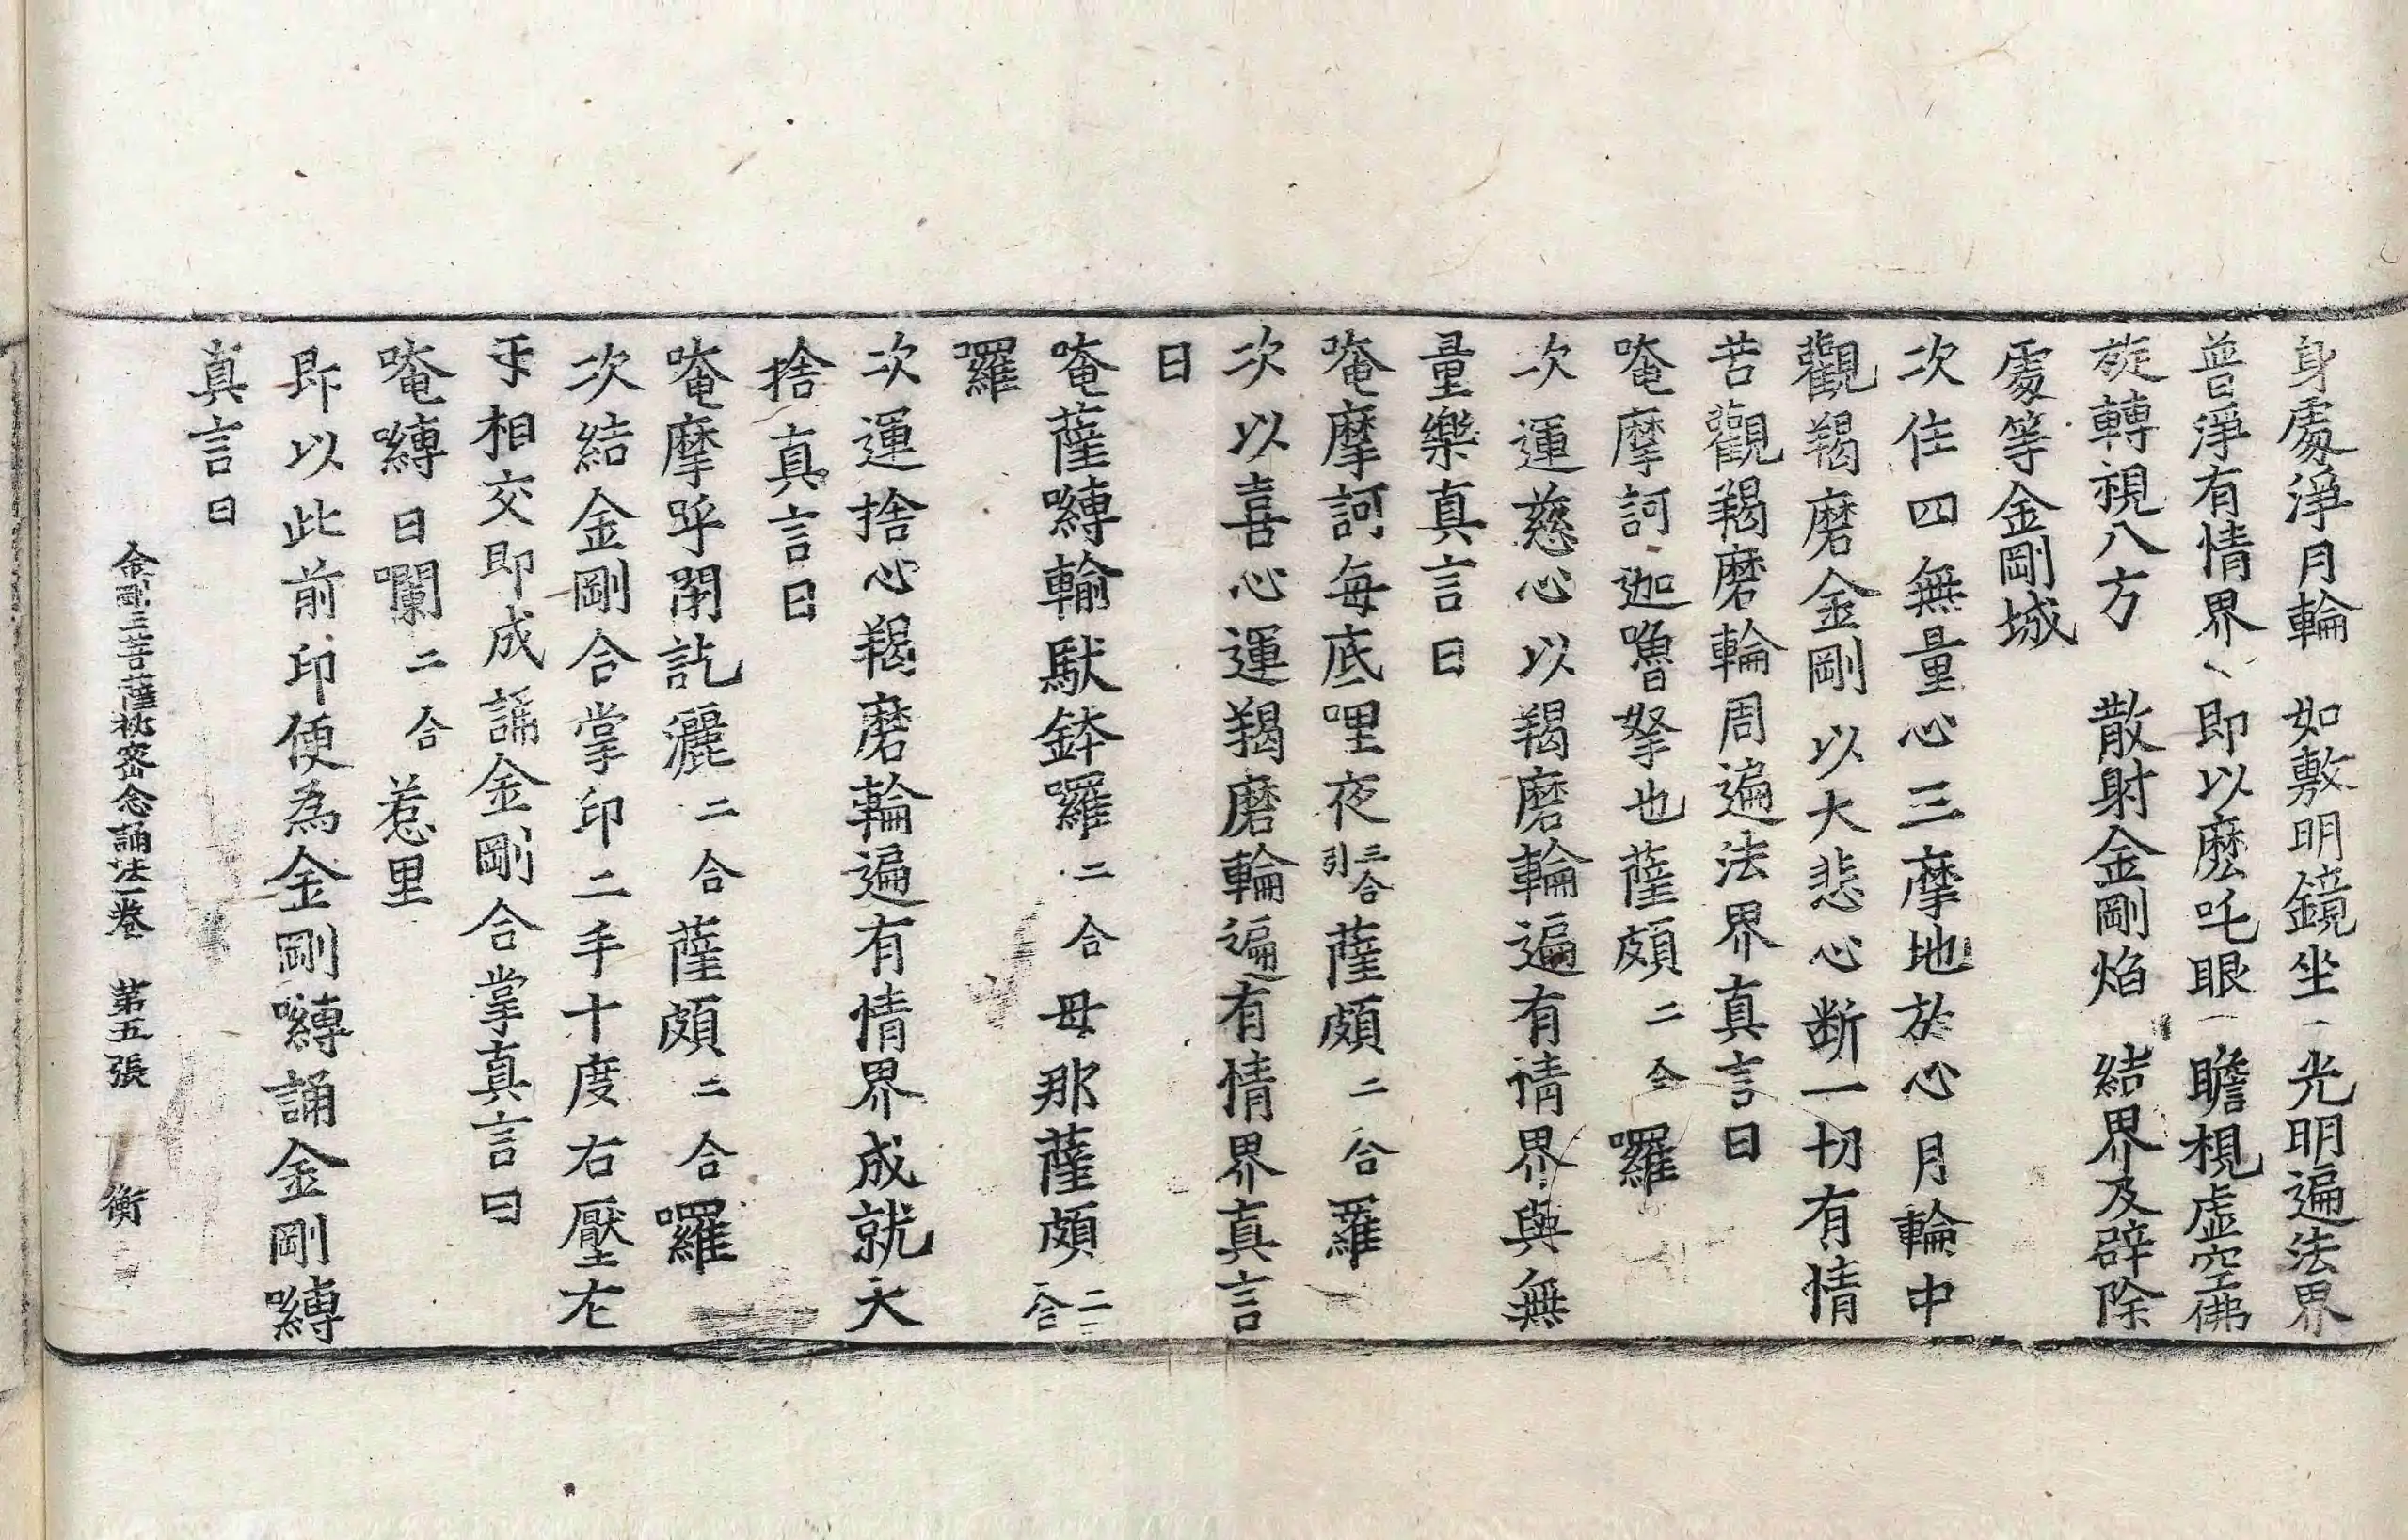 身處淨月輪　如敷明鏡坐　光明遍法界
普淨有情界　即以麽吒眼　瞻視虛空佛
旋轉視八方　散射金剛焰　結界及辟除
處等金剛城
次住四無量心三摩地於心月輪中
觀羯磨金剛以大悲心断一切有情
苦觀羯磨輪周遍法界真言曰
唵摩訶迦嚕拏也薩頗二合囉
次運慈心以羯磨輪遍有情界與無
量樂真言曰
唵摩訶每底哩夜三合引薩頗二合羅
次以喜心運羯磨輪遍有情界真言
曰
唵薩嚩輸馱鉢囉二合母那薩頗二合
囉
次運捨心羯磨輪遍有情界成就大
捨真言曰
唵摩呼閙訖灑二合薩頗二合囉
次結金剛合掌印二手十度右壓左
手相交即成誦金剛合掌真言曰
唵嚩日囉二合惹里
即以此前印便為金剛嚩誦金剛嚩
真言曰
金剛三菩薩秘密念誦法一卷　第五張　衡